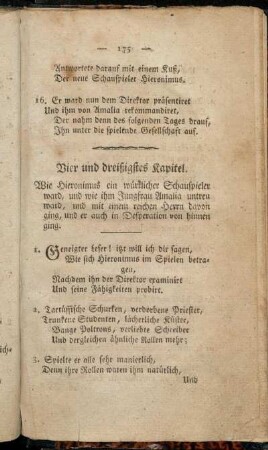 175
Antwortete darauf mit einem Kuß,
Der neue Schauspieler Hieronimus.
16. Er ward nun dem Direktor präsentiret
Und ihm von Amalia rekommandiret,
Der nahm denn des folgenden Tages drauf,
Ihn unter die spielende Gesellschaft auf.
Vier und dreißigstes Kapitel.
Wie Hieronimus ein würklicher Schauspieler
ward, und wie ihm Jungfrau Amalia untreu
ward, und mit einem reichen Herrn davon
ging, und er auch in Desperation von hinnen
ging.
1. Geneigter Leser! itzt will ich dir sagen,
Wie sich Hieronimus im Spielen betra-
gen,
Nachdem ihn der Direktor examinirt
Und seine Fähigkeiten probirt.
2. Tartüffische Schurken, verdorbene Priester,
Trunkene Studenten, lächerliche Küster,
Bange Poltrons, verliebte Schreiber
Und dergleichen ähnliche Rollen mehr;
3. Spielte er alle sehr manierlich,
Denn ihre Rollen waren ihm natürlich,
Und